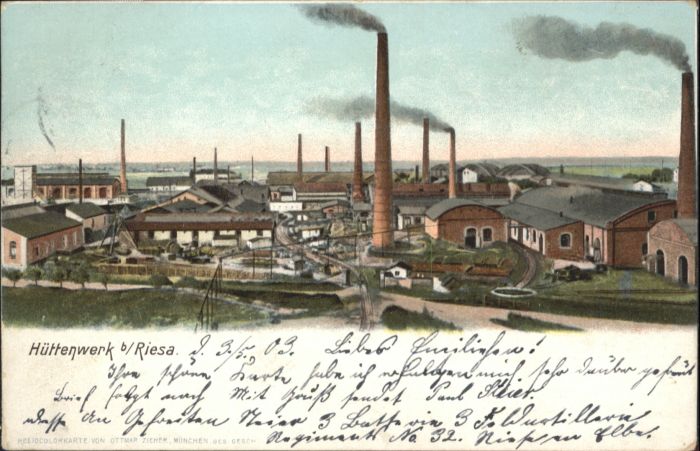 Hüttenwerk b/Riesa. d. 3/5 03. Liebes Emilichen!
Ihre schöne Karte habe ich erhalten mich sehr darüber gefreut
Brief folgt nach Mit Gruß sendet Paul
adresse An Gefreiten 3 Batterie 3 Feldartillerie
Regiment No 32. Riesa an Elbe.
HELIOCOLORKARTE VON OTTMAR ZIEHER, MÜNCHEN GES. GESCH